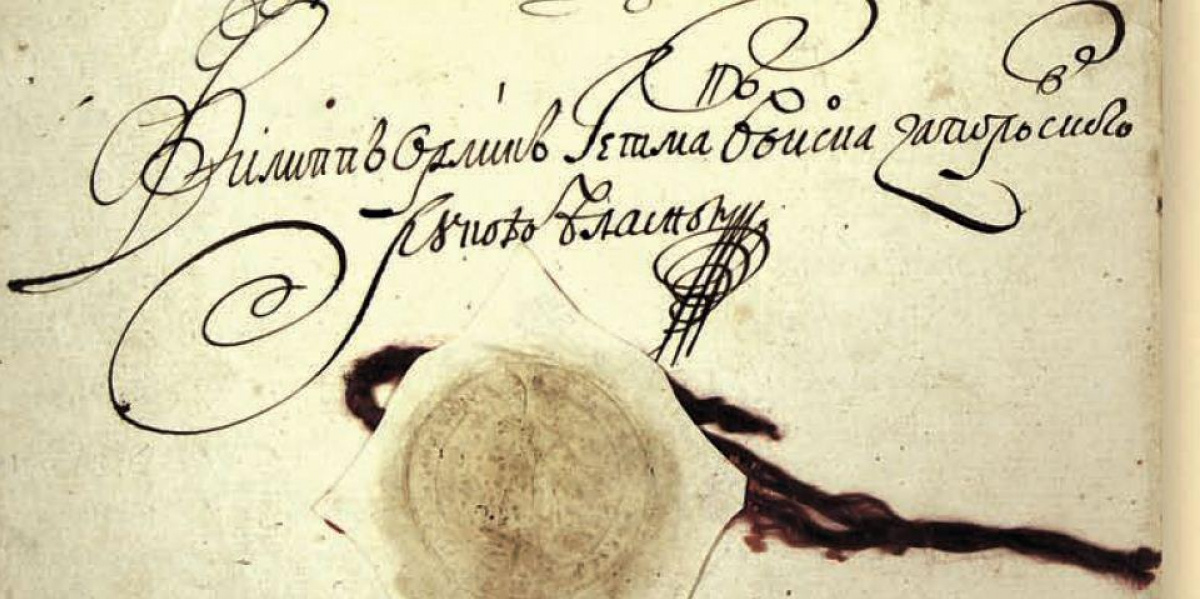 Філипъ Орликъ Гетма Войска Запорозского
рукою власною